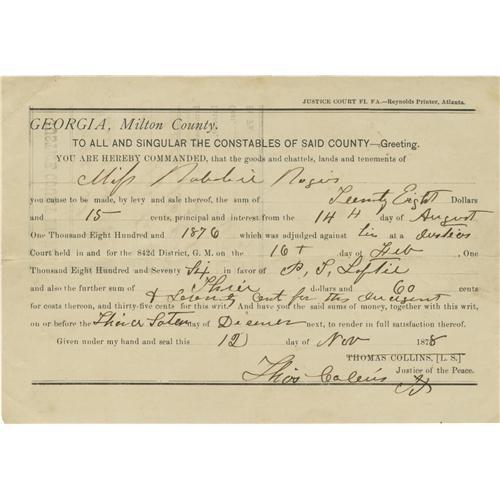 JUSTICE COURT FI. FA.—Reynolds Printer, Atlanta.
GEORGIA, Milton County.
TO ALL AND SINGULAR THE CONSTABLES OF SAID COUNTY—Greeting.
YOU ARE HEREBY COMMANDED, that the goods and chattels, lands and tenements of
Miss
you cause to be made, by levy and sale thereof, the sum of Twenty Eight Dollars
and 15 cents, principal and interest from the 14 day of August
One Thousand Eight Hundred and 1876 which was adjudged against at a Justices
Court held in and for the 842d District, G. M. on the 16 day of Feb , One
Thousand Eight Hundred and Seventy Six in favor of P. S. Loftie
and also the further sum of Three dollars and 60 cents
& Seventy Cent for this
for costs thereon, and thirty-five cents for this writ. And have you the said sums of money, together with this writ,
on or before the day of next, to render in full satisfaction thereof.
Given under my hand and seal this 12 day of Nov 1878
THOMAS COLLINS, [L. S.]
Thos Justice of the Peace.